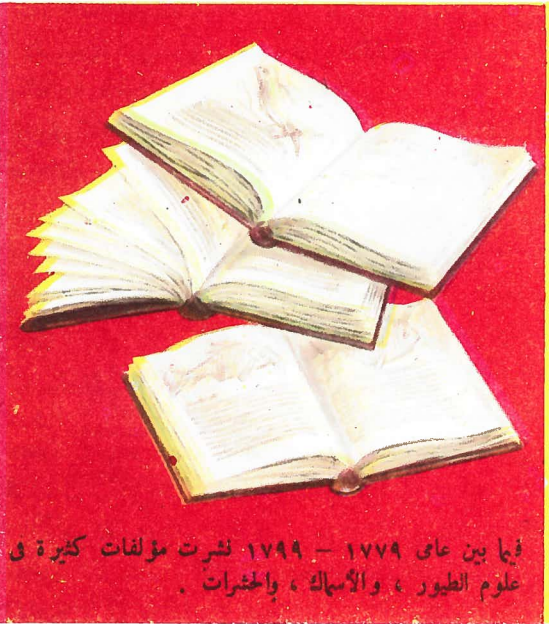 فيما بين عامى ١٧٧٩ – ١٧٩٩ نشرت مؤلفات كثيرة فى
علوم الطيور ، والأسماك ، والحشرات .